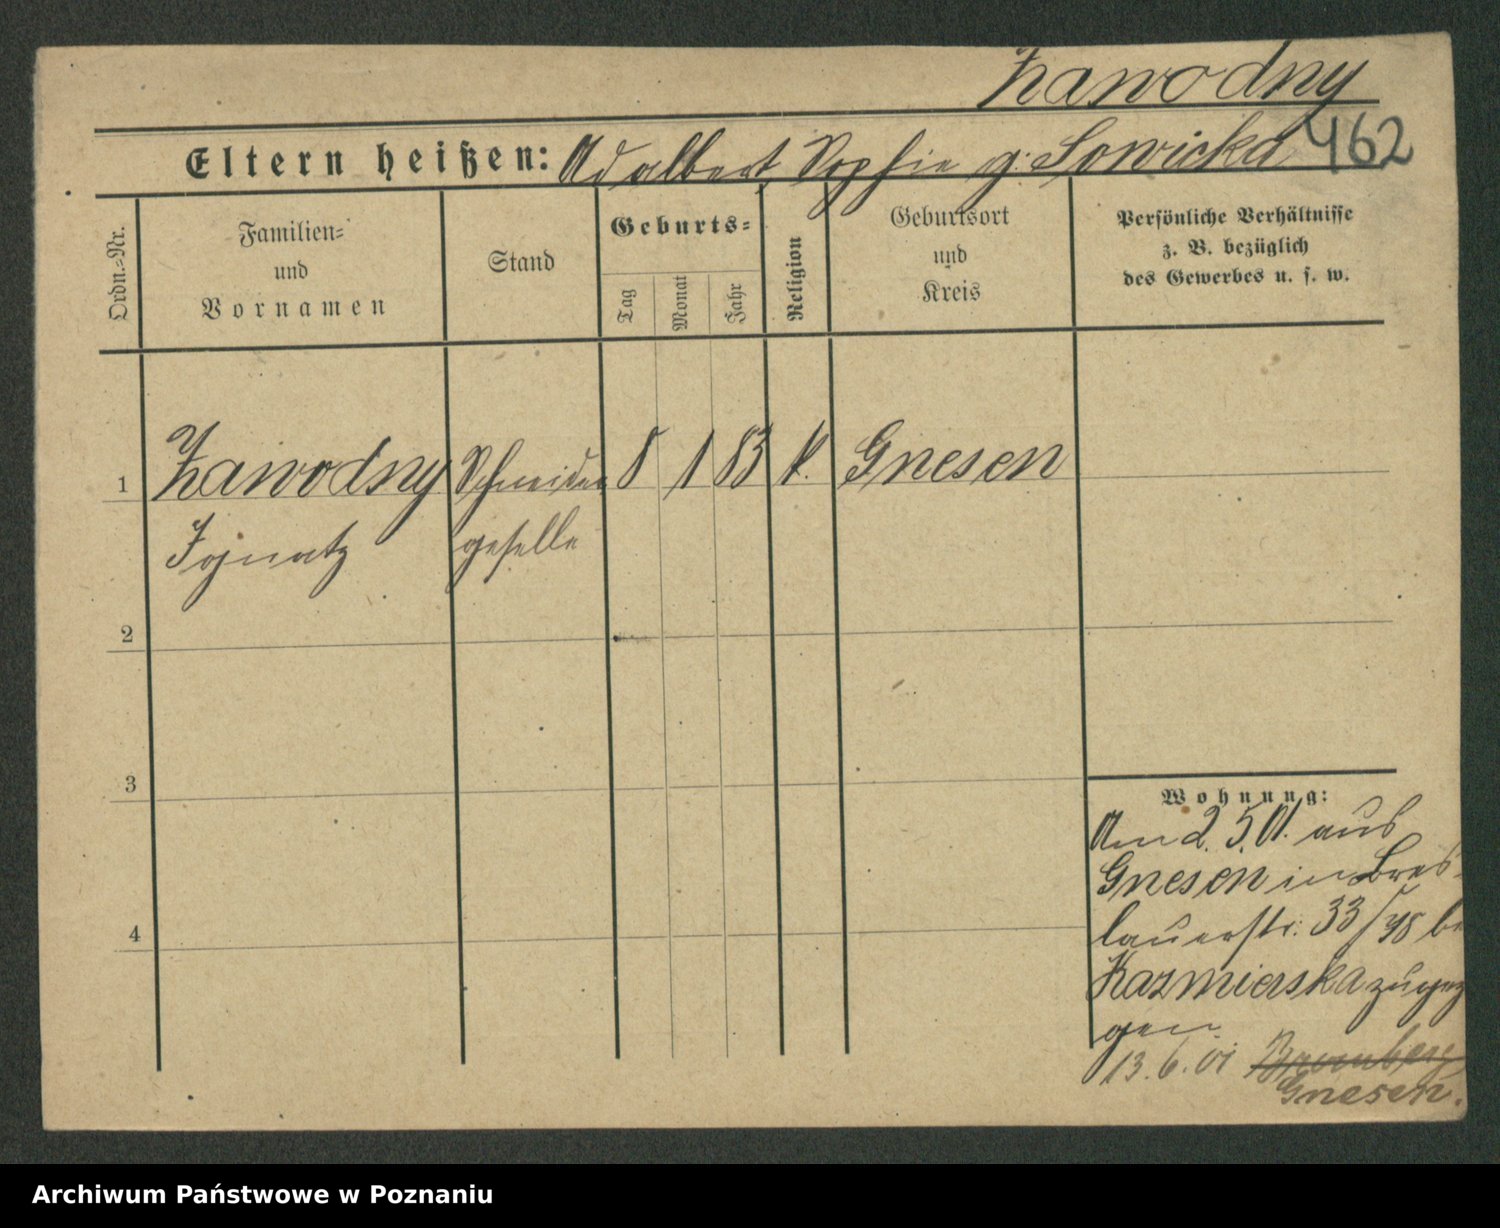 Zawodny
462
Eltern heißen: Adalbert, Sophie g. Sowicka
Ordn.-Nr.
Familien-
und
Vornamen
Stand
Geburts-
Tag
Monat
Jahr
Religion
Geburtsort
und
Kreis
Persönliche Verhältnisse
z. B. bezüglich
des Gewerbes u. s. w.
1 Zawodny Schneider 8 1 83 k. Gnesen
Ignatz geselle
2
3
4
Wohnung:
Am 2. 5. 01. aus
Gnesen in Bres-
lauerstr. 33/38 be
Kazmierska zugezo
gen.
13.6.01 Bromberg
Gnesen.
Archiwum Państwowe w Poznaniu